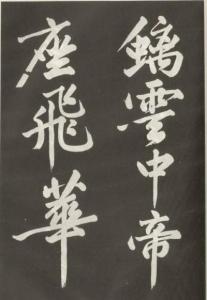 雲中帝
座飛華